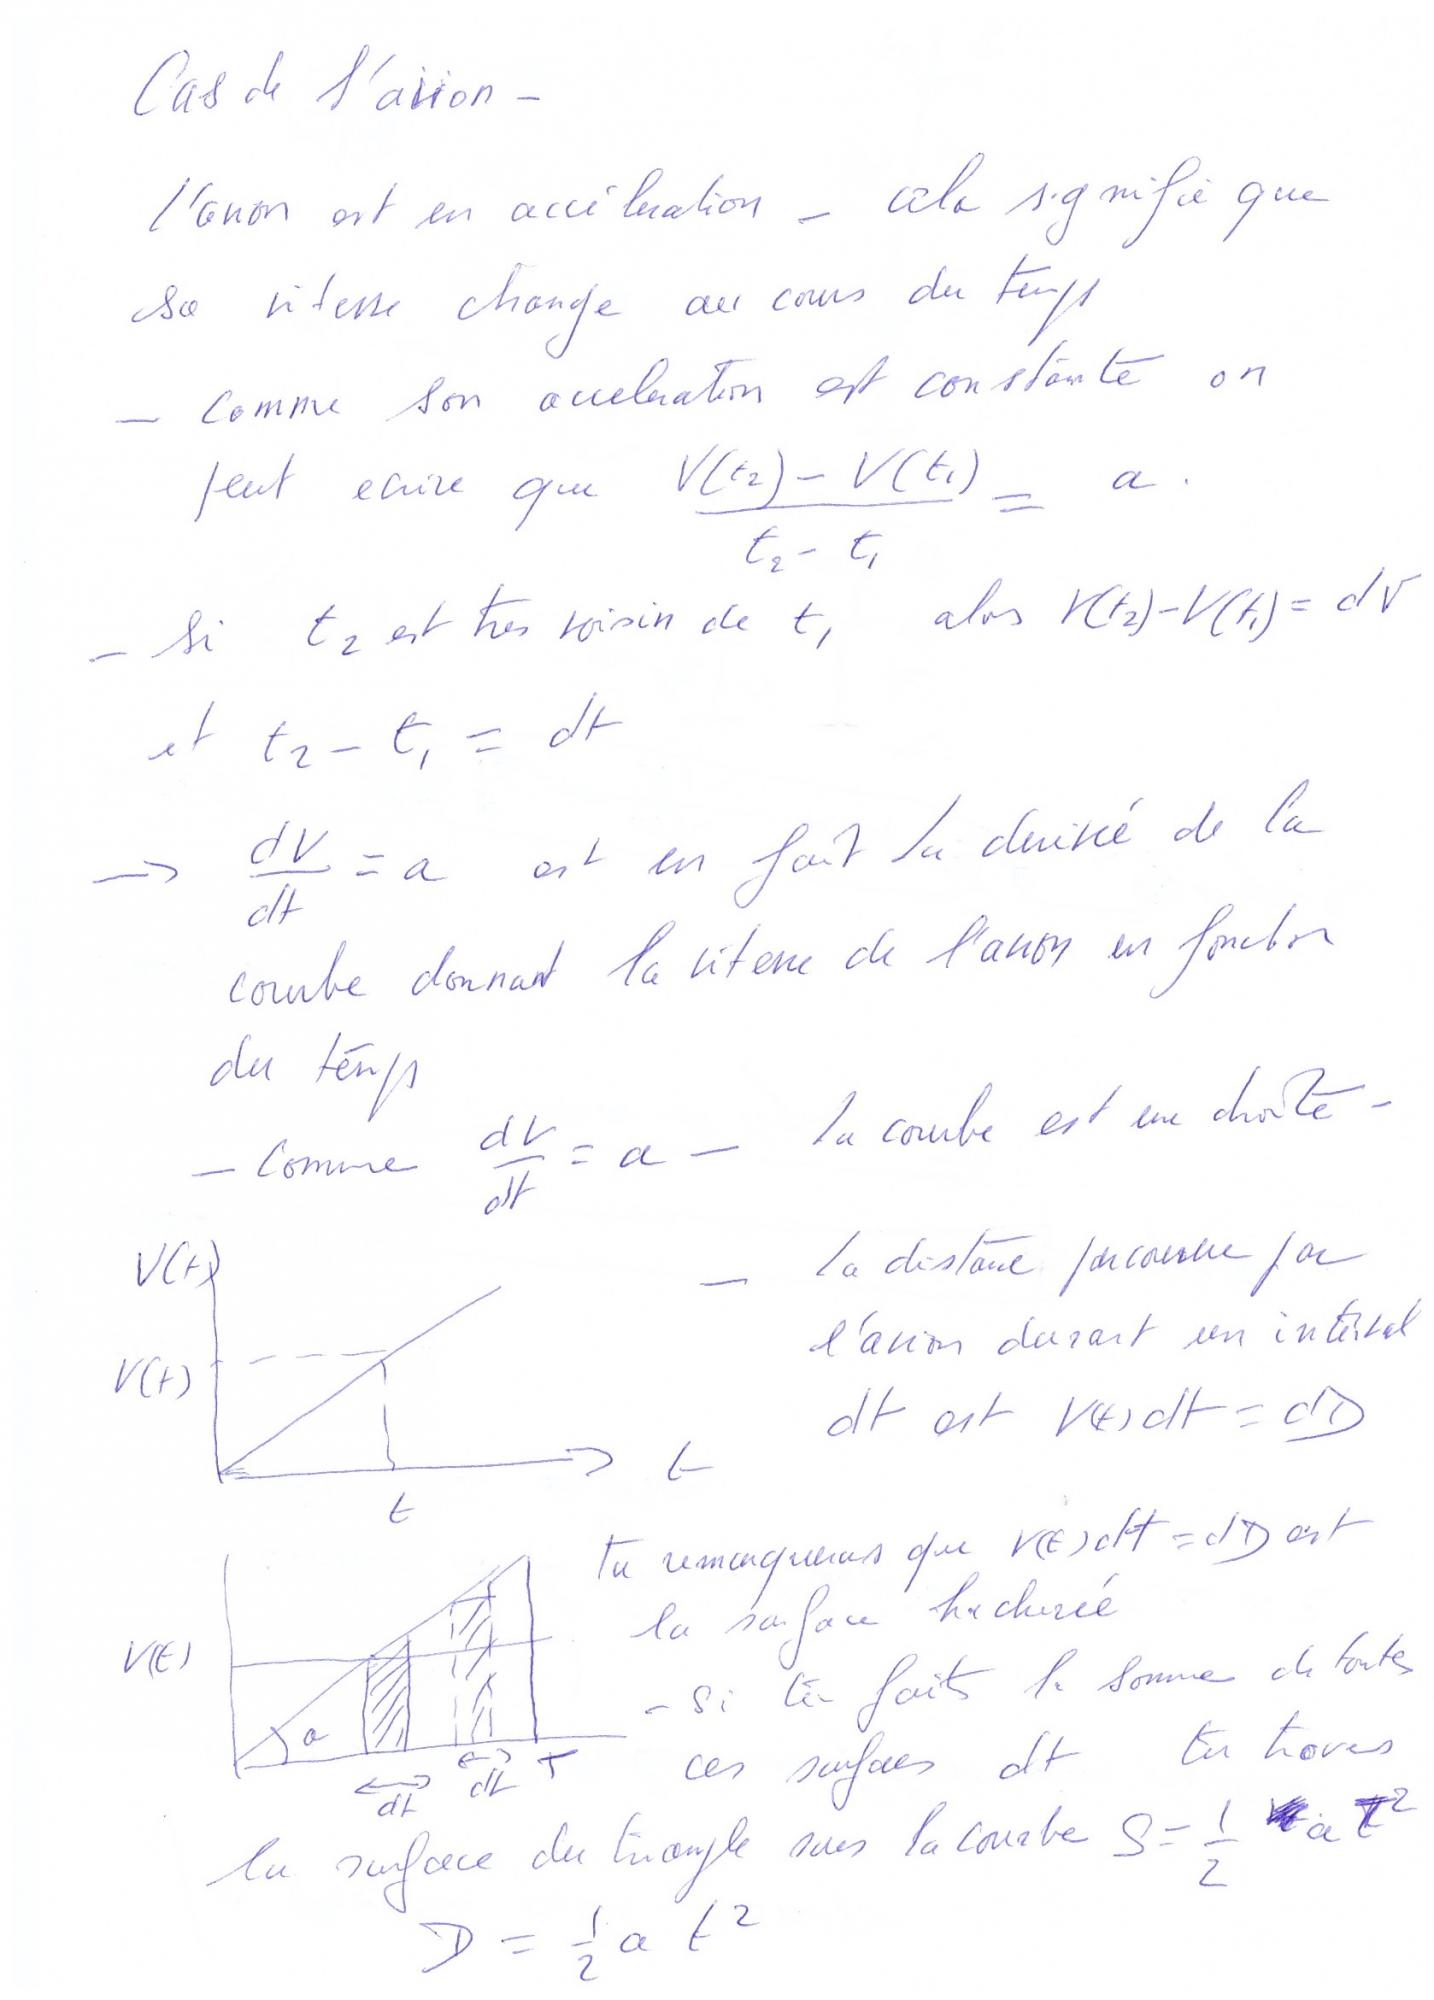 Cas de l'avion -
l'avion est en accéleration - cela signifie que
sa vitesse change au cours du temps
- Comme son acceleration est constante on
peut ecrire que V(t2) - V(t1) / t2 - t1 = a.
- Si t2 est tres voisin de t1 alors V(t2) - V(t1) = dV
et t2 - t1 = dt
-> dV/dt = a est en fait la derivée de la
courbe donnant la vitesse de l'avion en fonction
du temps
- Comme dV/dt = a - la courbe est une droite -
V(t)
V(t)
t
t
- la distance parcourue par
l'avion durant un interval
dt est V(t) dt = dD
tu remarqueras que V(t) dt = dD est
la surface hachurée
- Si tu faits la somme de toutes
ces surfaces dt tu trouves
V(t)
a
dt
dt
T
la surface du triangle sous la courbe S = 1/2 a T²
D = 1/2 a t²